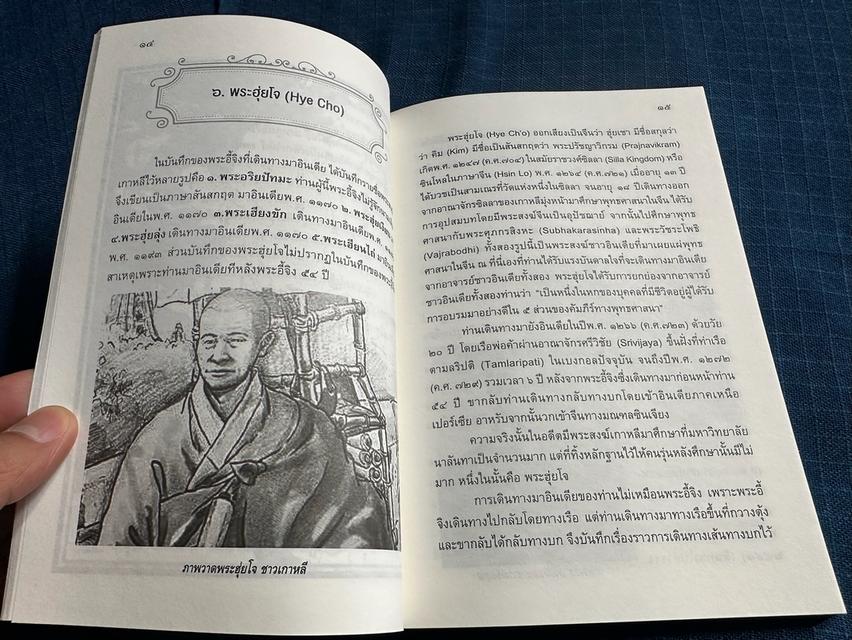 ๑๔
๖. พระฮุ่ยโจ (Hye Cho)
ในบันทึกของพระอี้จิงที่เดินทางมาอินเดีย ได้บันทึกรายชื่อพระ
เกาหลีไว้หลายรูปคือ ๑. พระอริยปัทมะ ท่านผู้นี้พระอี้จิงไม่รู้จัก
จึงเขียนเป็นภาษาสันสกฤต มาอินเดียพ.ศ. ๑๑๗๐ ๒.
อินเดียในพ.ศ. ๑๑๗๐ ๓.พระเฮียงขัก เดินทางมาอินเดียพ.ศ.
๔.พระฮุ่ยลุ่ง เดินทางมาอินเดียพ.ศ. ๑๑๗๐ ๕.พระเฮียนไถ่
พ.ศ. ๑๑๙๓ ส่วนบันทึกของพระฮุ่ยโจไม่ปรากฏในบันทึกของ
สาเหตุเพราะท่านมาอินเดียทีหลังพระอี้จิง ๕๔ ปี
ภาพวาดพระฮุ่ยโจ ชาวเกาหลี
๑๕
พระฮุ่ยโจ (Hye Ch'o) ออกเสียงเป็นจีนว่า ฮุ่ยเชา มีชื่อสกุลว่า
ว่า คิม (Kim) มีชื่อเป็นสันสกฤตว่า พระปรัชญาวิกรม (Prajnavikram)
เกิดพ.ศ. ๑๒๔๗ (ค.ศ.๗๐๔) ในสมัยราชวงศ์ซิลลา (Silla Kingdom) หรือ
ซินโหลในภาษาจีน (Hsin Lo) พ.ศ. ๑๒๖๔ (ค.ศ.๗๒๑) เมื่ออายุ ๑๓ ปี
ได้บวชเป็นสามเณรที่วัดแห่งหนึ่งในซิลลา จนอายุ ๑๘ ปีเดินทางออก
จากอาณาจักรซิลลาของเกาหลีมุ่งหน้ามาศึกษาพุทธศาสนาในจีน ได้รับ
การอุปสมบทโดยมีพระสงฆ์จีนเป็นอุปัชฌาย์ จากนั้นไปศึกษาพุทธ
ศาสนากับพระศุภกรสิงหะ (Subhakarasinha) และพระวัชระโพธิ
(Vajrabodhi) ทั้งสองรูปนี้เป็นพระสงฆ์ชาวอินเดียที่มาเผยแผ่พุทธ
ศาสนาในจีน ณ ที่นี่เองที่ท่านได้รับแรงบันดาลใจที่จะเดินทางมาอินเดีย
จากอาจารย์ชาวอินเดียทั้งสอง พระฮุ่ยโจได้รับการยกย่องจากอาจารย์
ชาวอินเดียทั้งสองท่านว่า "เป็นหนึ่งในหกของบุคคลที่มีชีวิตอยู่ผู้ได้รับ
การอบรมมาอย่างดีใน ๕ ส่วนของคัมภีร์ทางพุทธศาสนา"
ท่านเดินทางมายังอินเดียในปีพ.ศ. ๑๒๖๖ (ค.ศ.๗๒๓) ด้วยวัย
๒๐ ปี โดยเรือพ่อค้าผ่านอาณาจักรศรีวิชัย (Srivijaya) ขึ้นฝั่งที่ท่าเรือ
ตามลริปติ (Tamlaripati) ในเบงกอลปัจจุบัน จนถึงปีพ.ศ. ๑๒๗๒
(ค.ศ. ๗๒๙) รวมเวลา ๖ ปี หลังจากพระอี้จิงซึ่งเดินทางมาก่อนหน้าท่าน
๕๔ ปี ขากลับท่านเดินทางกลับทางบกโดยเข้าอินเดียภาคเหนือ
เปอร์เซีย อาหรับจากนั้นวกเข้าจีนทางมณฑลซินเจียง
ความจริงนั้นในอดีตมีพระสงฆ์เกาหลีมาศึกษาที่มหาวิทยาลัย
นาลันทาเป็นจำนวนมาก แต่ที่ทิ้งหลักฐานไว้ให้คนรุ่นหลังศึกษานั้นมีไม่
มาก หนึ่งในนั้นคือ พระฮุ่ยโจ
การเดินทางมาอินเดียของท่านไม่เหมือนพระอี้จิง เพราะพระอี้
จิงเดินทางไปกลับโดยทางเรือ แต่ท่านเดินทางมาทางเรือขึ้นที่กวางตุ้ง
และขากลับได้กลับทางบก จึงบันทึกเรื่องราวการเดินทางเส้นทางบกไว้